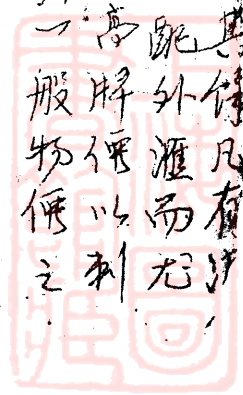 其餘凡有
配外滙而
高牌價以刺
一般物價之